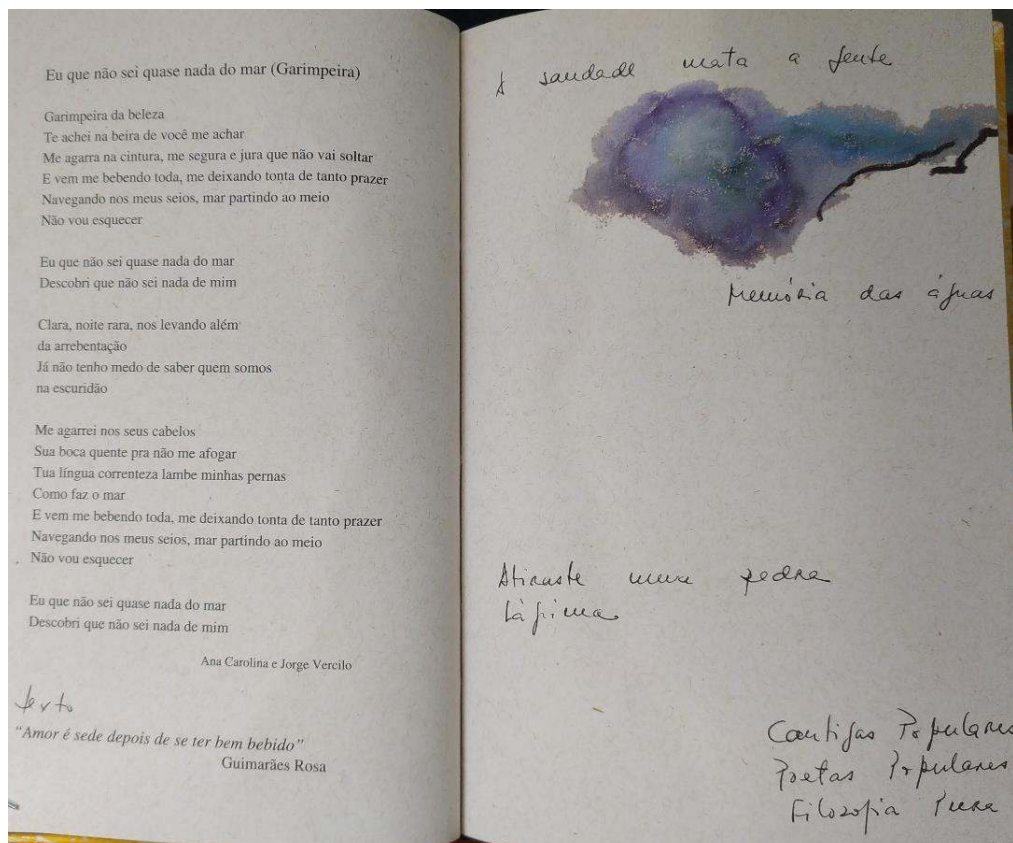 Eu que não sei quase nada do mar (Garimpeira)
Garimpeira da beleza
Te achei na beira de você me achar
Me agarra na cintura, me segura e jura que não vai soltar
E vem me bebendo toda, me deixando tonta de tanto prazer
Navegando nos meus seios, mar partindo ao meio
Não vou esquecer
Eu que não sei quase nada do mar
Descobri que não sei nada de mim
Clara, noite rara, nos levando além
da arrebentação
Já não tenho medo de saber quem somos
na escuridão
Me agarrei nos seus cabelos
Sua boca quente pra não me afogar
Tua língua correnteza lambe minhas pernas
Como faz o mar
E vem me bebendo toda, me deixando tonta de tanto prazer
Navegando nos meus seios, mar partindo ao meio
Não vou esquecer
Eu que não sei quase nada do mar
Descobri que não sei nada de mim
Ana Carolina e Jorge Vercilo
texto
"Amor é sede depois de se ter bem bebido"
Guimarães Rosa
A saudade mata a gente
Memória das águas
Atiraste uma pedra
Lágrima
Cantigas Populares
Poetas Populares
Filozofia Pura